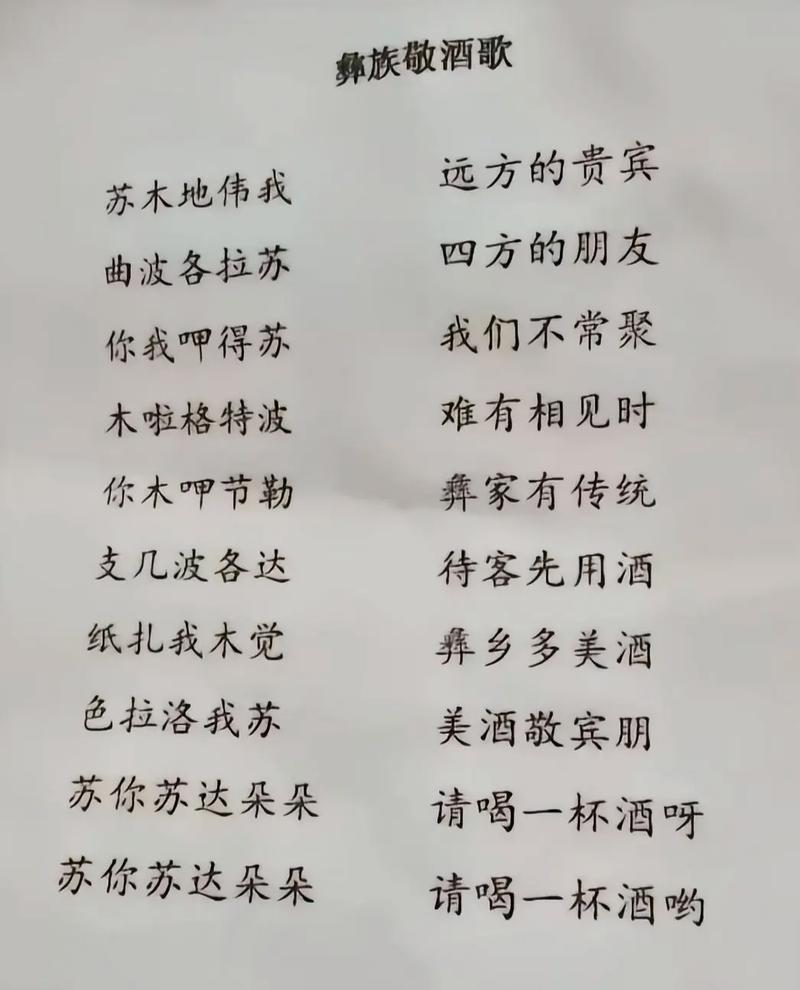 彝族敬酒歌
苏木地伟我
远方的贵宾
曲波各拉苏
四方的朋友
你我呷得苏
我们不常聚
木啦格特波
难有相见时
你木呷节勒
彝家有传统
支几波各达
待客先用酒
纸扎我木觉
彝乡多美酒
色拉洛我苏
美酒敬宾朋
苏你苏达朵朵
请喝一杯酒呀
苏你苏达朵朵
请喝一杯酒哟